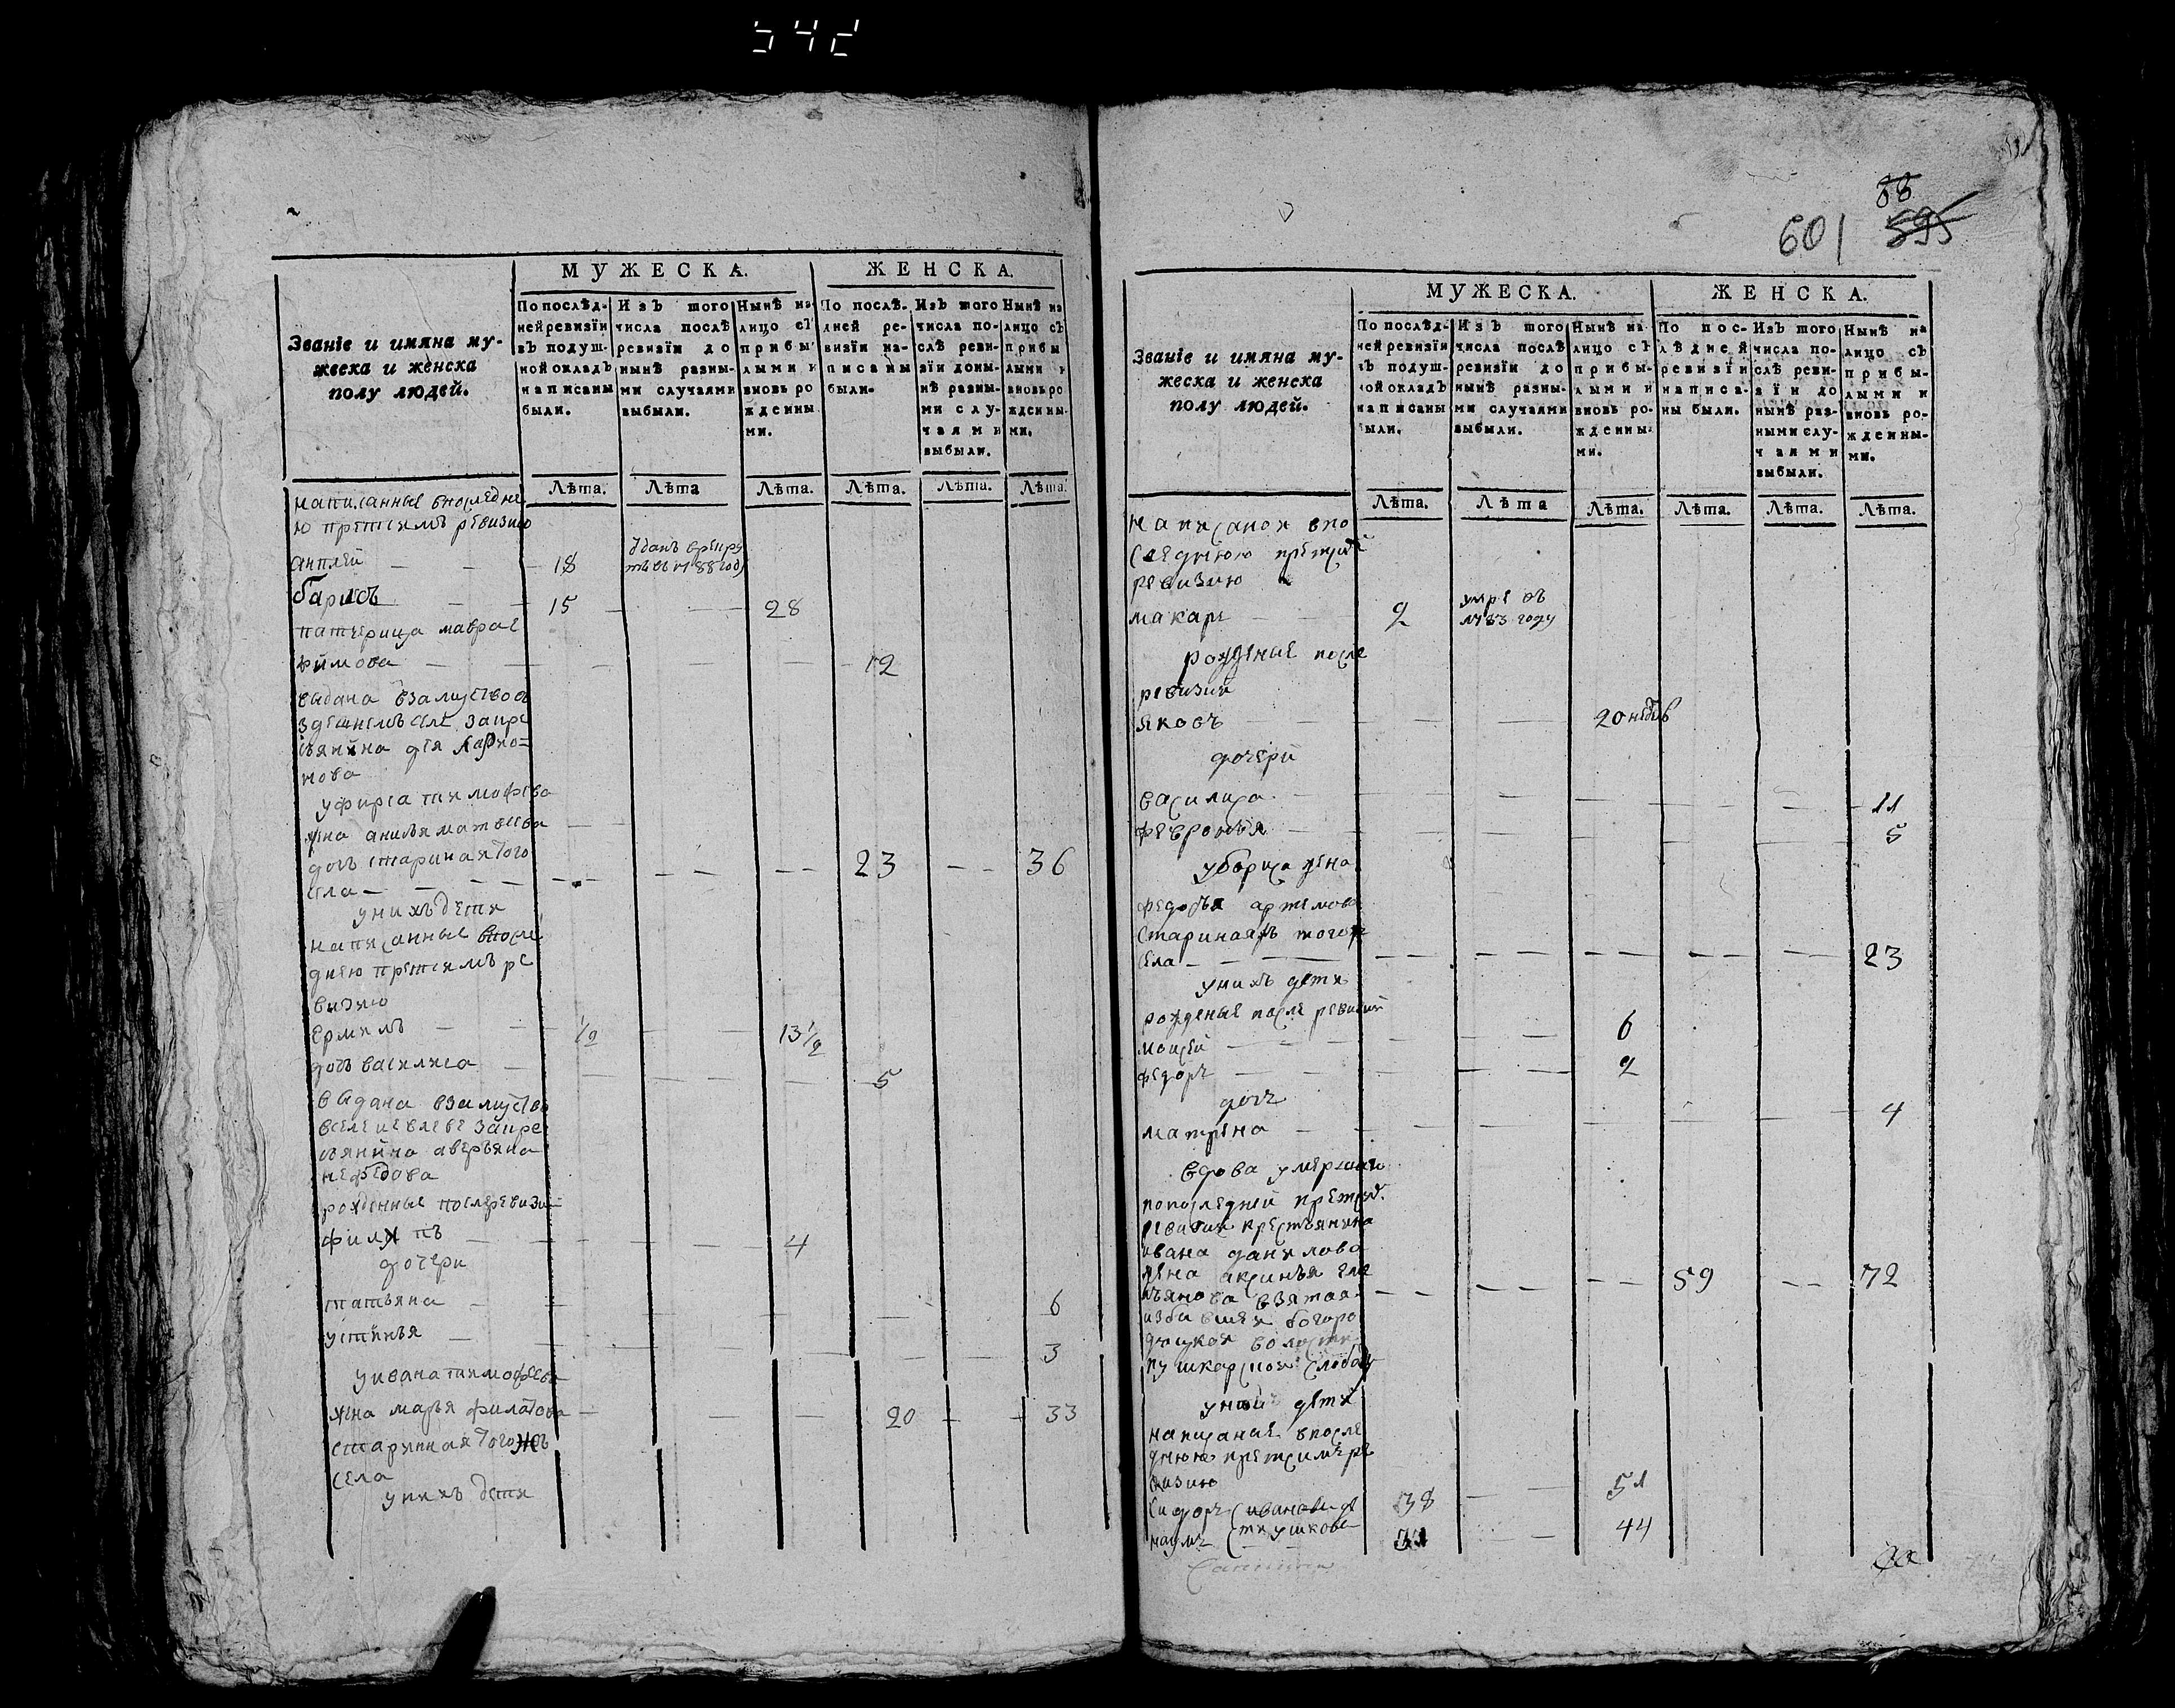 542
МУЖЕСКА. ЖЕНСКА.
Званіе и имяна му-
жеска и женска
полу людей.
По послѣд-
ней ревизіи
въ подуш-
ной окладъ
написаны
были.
Изъ того
числа послѣ
ревизіи до
нынѣ разны-
ми случаями
выбыли.
Нынѣ на-
лицо съ
прибы
лыми и
вновь ро
жденны
ми.
По послѣ-
дней ре-
визіи на-
писаны
были.
Изъ того
числа по-
слѣ реви-
зіи доны-
нѣ разны-
ми слу-
чаями
выбыли.
Нынѣ на
лицо съ
прибы
лыми и
вновь ро
жденны-
ми.
Лѣта. Лѣта Лѣта. Лѣта. Лѣта. Лѣта.
написанные впоследне
ю претсимъ ревизию
18
барисъ — — 15 — — 28
патчерица мавра е
фимова — — — — — 12
выдана взамуство въ
здешнемъ селе закре
стьянина
нова
тимофеева
жена анисья матвеева
дочь стариная того
села — — — — — — 23 — — 36
унихъ дети
написанные впосле
днею претсимъ ре
визию
ермилъ — — 1/2 — — 13 1/2
дочь василиса — — — — — 5
выдана взамуство
закре
стьянина аверьяна
нефедова
рожденные послеревизи
филипъ — — — — 4
дочери
татьяна — — — — — — 6
устинья — — — — — — 3
уивана тимофеева
жена марья филатова — — — 20 — — 33
старинная тогожъ
села
унихъ дети
88
601 595
МУЖЕСКА. ЖЕНСКА.
Званіе и имяна му-
жеска и женска
полу людей.
По послѣд-
ней ревизіи
въ подуш-
ной окладъ
написаны
были.
Изъ того
числа послѣ
ревизіи до
нынѣ разны-
ми случаями
выбыли.
Нынѣ на-
лицо съ
прибы-
лыми и
вновь ро-
жденны-
ми.
По пос-
лѣдней
ревизіи
написа-
ны были.
Изъ того
числа по-
слѣ реви-
зіи до
нынѣ раз-
ными слу-
чаями
выбыли.
Нынѣ на
лицо съ
прибы-
лыми и
вновь ро-
жденны-
ми.
Лѣта. Лѣта Лѣта. Лѣта. Лѣта. Лѣта.
написаной впо
следнюю
ревизию
макаръ — — 2 умре въ
1783 году
рожденые после
ревизии
яковъ — — — 20
дочери
василиса — — — — — — 11
февронья — — — — — — 5
убориса жена
федосья артемова
стариная тогожъ
села — — — — — — 23
унихъ дети
рожденые после ревизии
моисей — — — 6
федоръ — — — 2
дочь
матрена — — — — — — 4
вдова умершаго
попоследней
ревизии крестьянина
ивана данилова
жена аксинья еме
льянова взятая — — — 59 — — 72
избывшей богоро
дицкой волости
пушкарской слободы
уней дети
написаные впосле
днюю претсимъ ре
визию
сидоръ ивановы де 38 — — 51
наумъ 31 — — 44